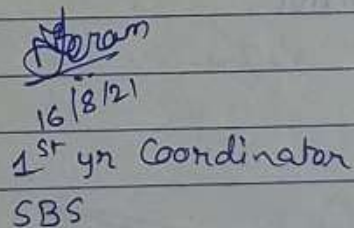 16/8/21
1st yr Coordinator
SBS